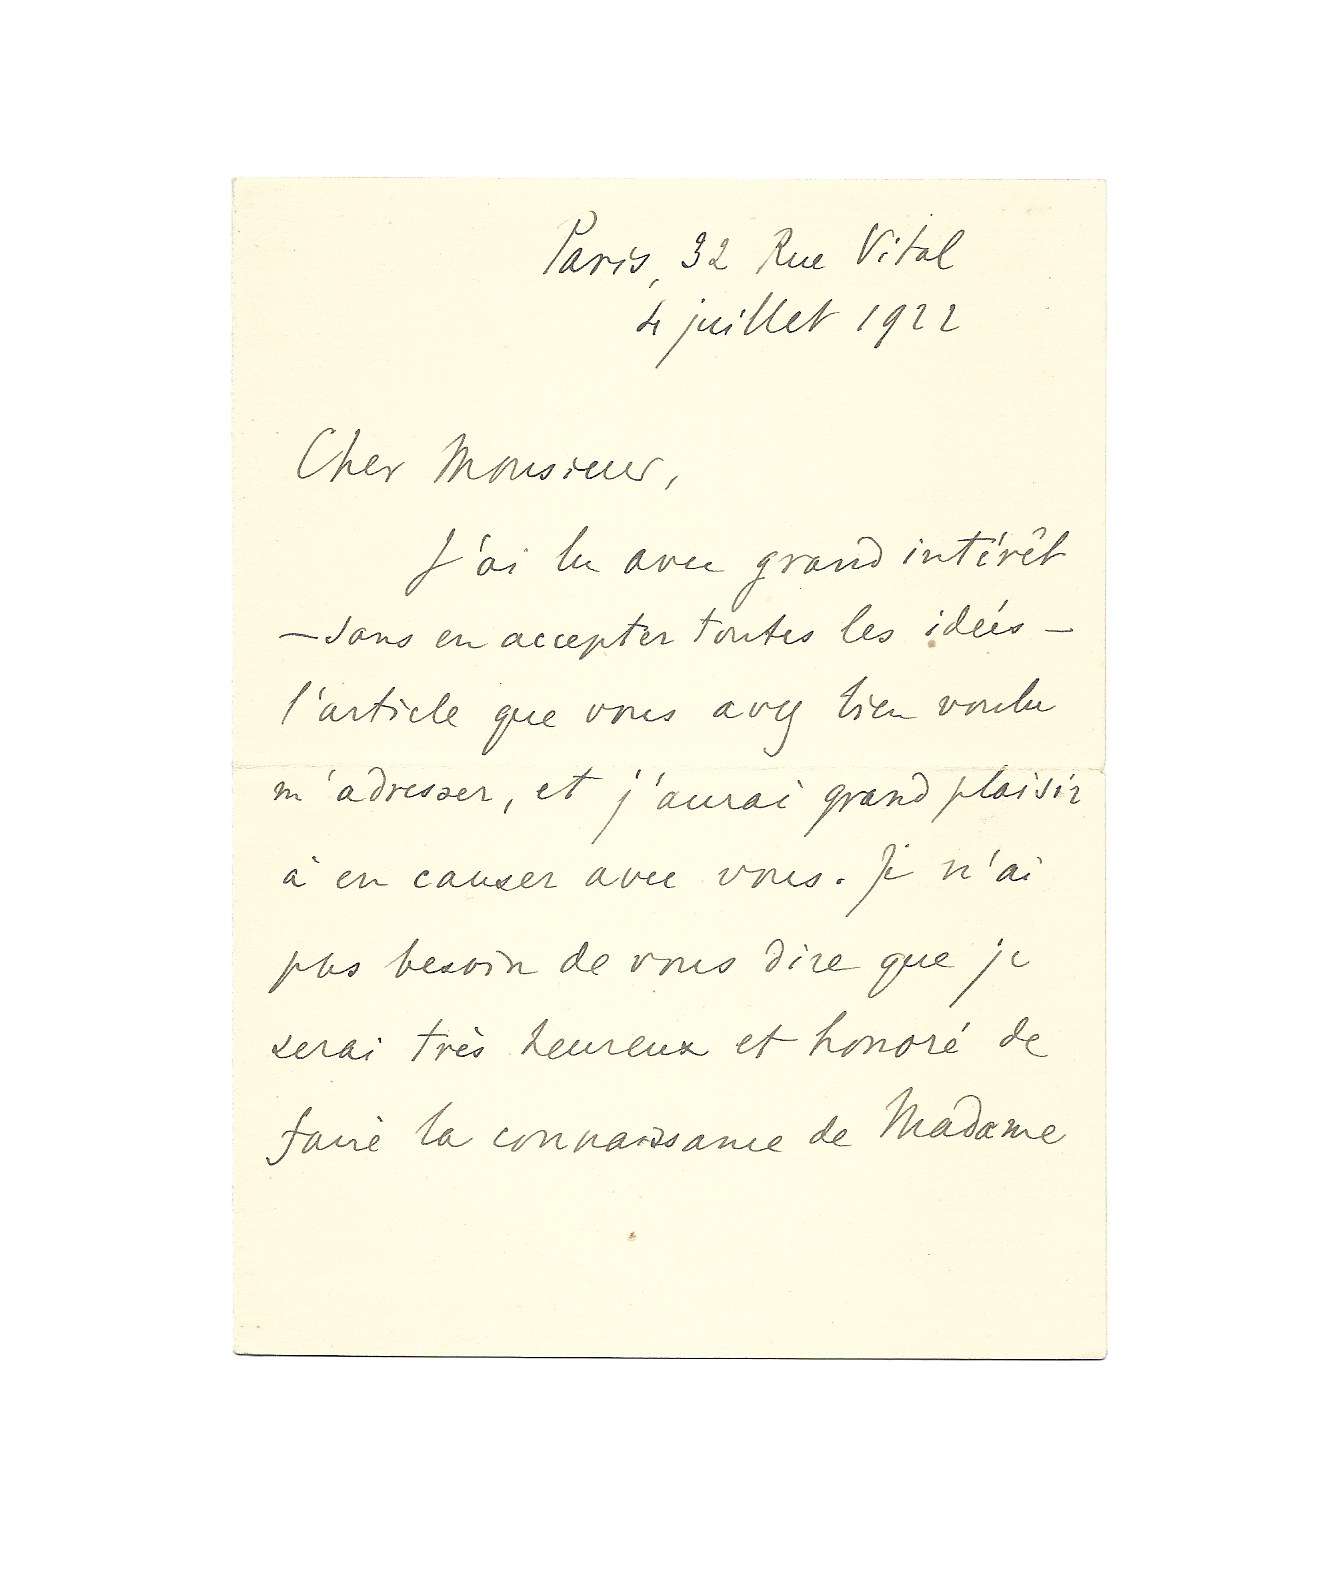 Paris, 32 Rue Vital
4 juillet 1922
Cher Monsieur,
J'ai lu avec grand intérêt
– sans en accepter toutes les idées –
l'article que vous avez bien voulu
m'adresser, et j'aurai grand plaisir
à en causer avec vous. Je n'ai
pas besoin de vous dire que je
serai très heureux et honoré de
faire la connaissance de Madame